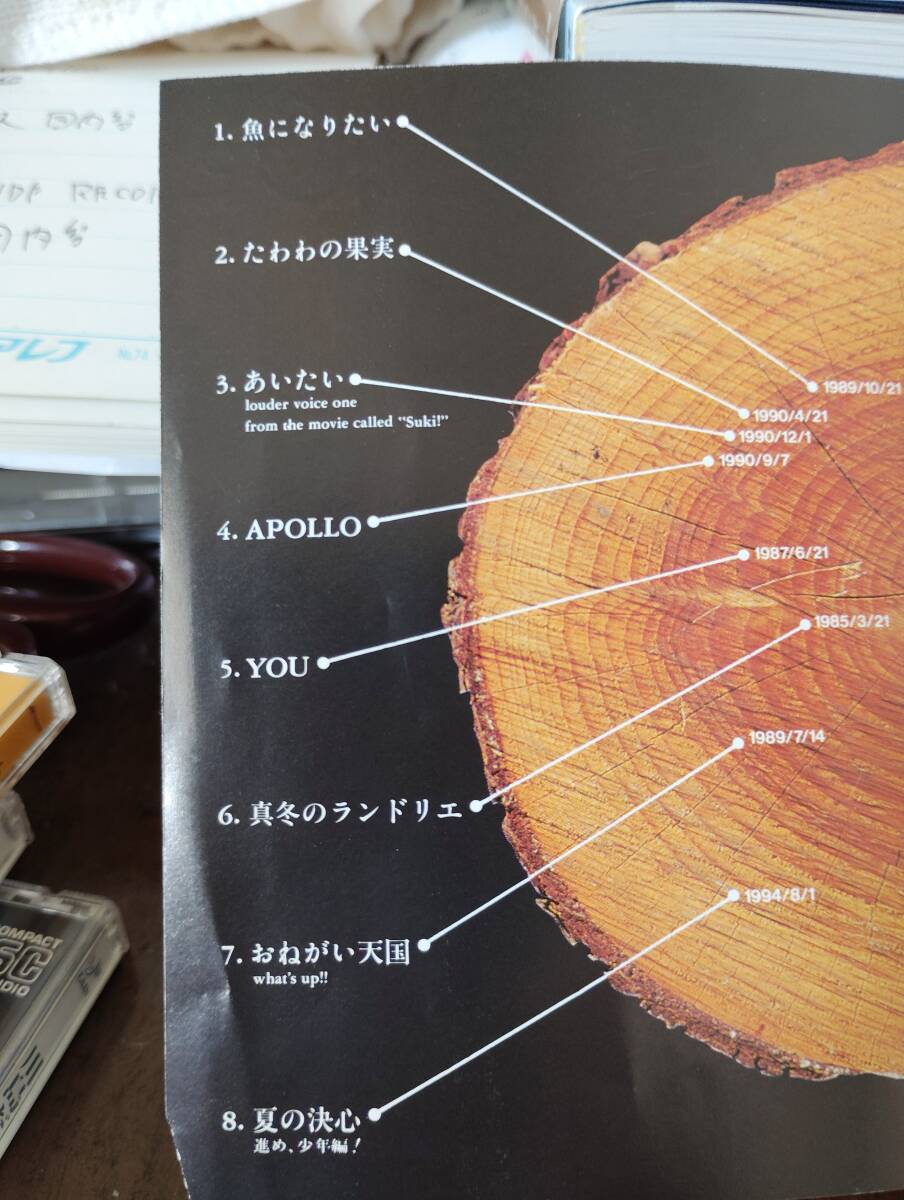 1. 魚になりたい
1989/10/21
2. たわわの果実
1990/4/21
3. あいたい
louder voice one
from the movie called "Suki!"
1990/12/1
4. APOLLO
1990/9/7
5. YOU
1987/6/21
6. 真冬のランドリエ
1985/3/21
7. おねがい天国
what's up!!
1989/7/14
8. 夏の決心
進め、少年編!
1994/8/1
国内盤
国内盤
COMPACT